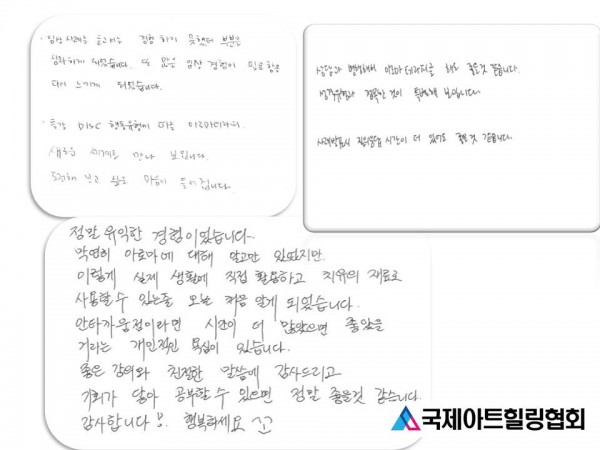 · 임상 사례를 들으면서 경험 하지 못했던 부분을
생각하게 되었습니다. 더 많은 임상 경험이 필요함을
다시 느끼게 되었습니다.
· 특강 DISC 행동유형에 따른 아로마테라피.
새로운 세계를 만나 보입니다.
도전해 보고 싶은 마음이 들어집니다.
상담과 병행해서 아로마테라피를 해도 좋을것 같습니다.
성격유형과 접목한 것이 특별해 보입니다.
사례발표시 질의응답 시간이 더 있어도 좋을것 같습니다.
정말 유익한 경험이었습니다.
막연히 아로마에 대해 알고만 있었지만.
이렇게 실제 생활에 직접 활용하고 치유의 재료로
사용할 수 있는줄 오늘 처음 알게 되었습니다.
안타까운점이라면 시간이 더 많았으면 좋았을
거라는 개인적인 욕심이 있습니다.
좋은 강의와 친절한 말씀에 감사드리고
기회가 닿아 공부할 수 있으면 정말 좋을것 같습니다.
감사합니다. 행복하세요 꼬
국제아트힐링협회